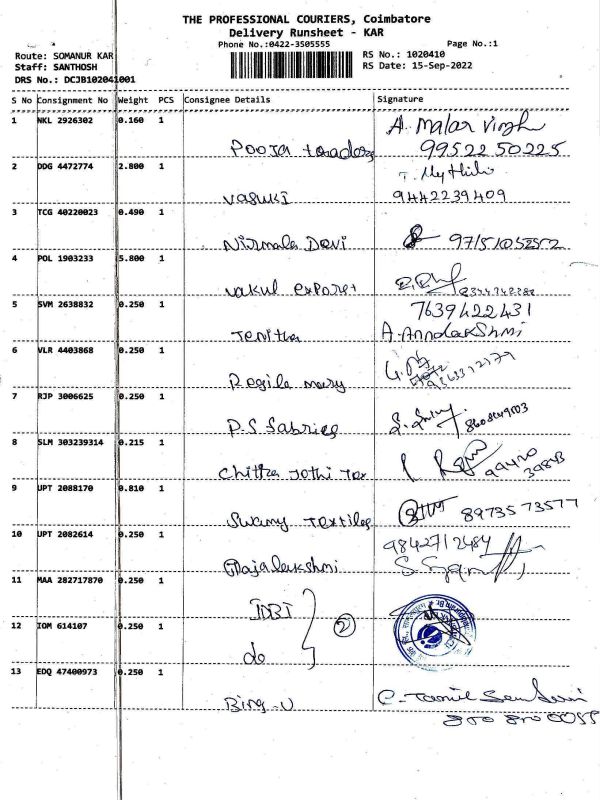 THE PROFESSIONAL COURIERS, Coimbatore
Delivery Runsheet - KAR
Phone No.:0422-3505555 Page No.:1
Route: SOMANUR KAR RS No.: 1020410
Staff: SANTHOSH RS Date: 15-Sep-2022
DRS No.: DCJB102041001
S No Consignment No Weight PCS Consignee Details Signature
1 NKL 2926302 0.160 1 A. Malar
Pooja 9952250225
2 DDG 4472774 2.800 1 T. Mythili
Vasuki 9442239409
3 TCG 40220023 0.490 1
Nirmala Devi
4 POL 1903233 5.800 1
Vakul Export
5 SVM 2638832 0.250 1 7639422431
Jenitha A. Annalakshmi
6 VLR 4403868 0.250 1
Regila mary
7 RJP 3006625 0.250 1
P.S Fabrics
8 SLM 303239314 0.215 1
Chithra Jothi Tex
9 UPT 2088170 0.810 1
Swamy Textiles 8973573577
10 UPT 2082614 0.250 1 9842712484
Rajalakshmi
11 MAA 282717870 0.250 1
IDBI
12 IOM 614107 0.250 1 2
do
13 EDQ 47400973 0.250 1